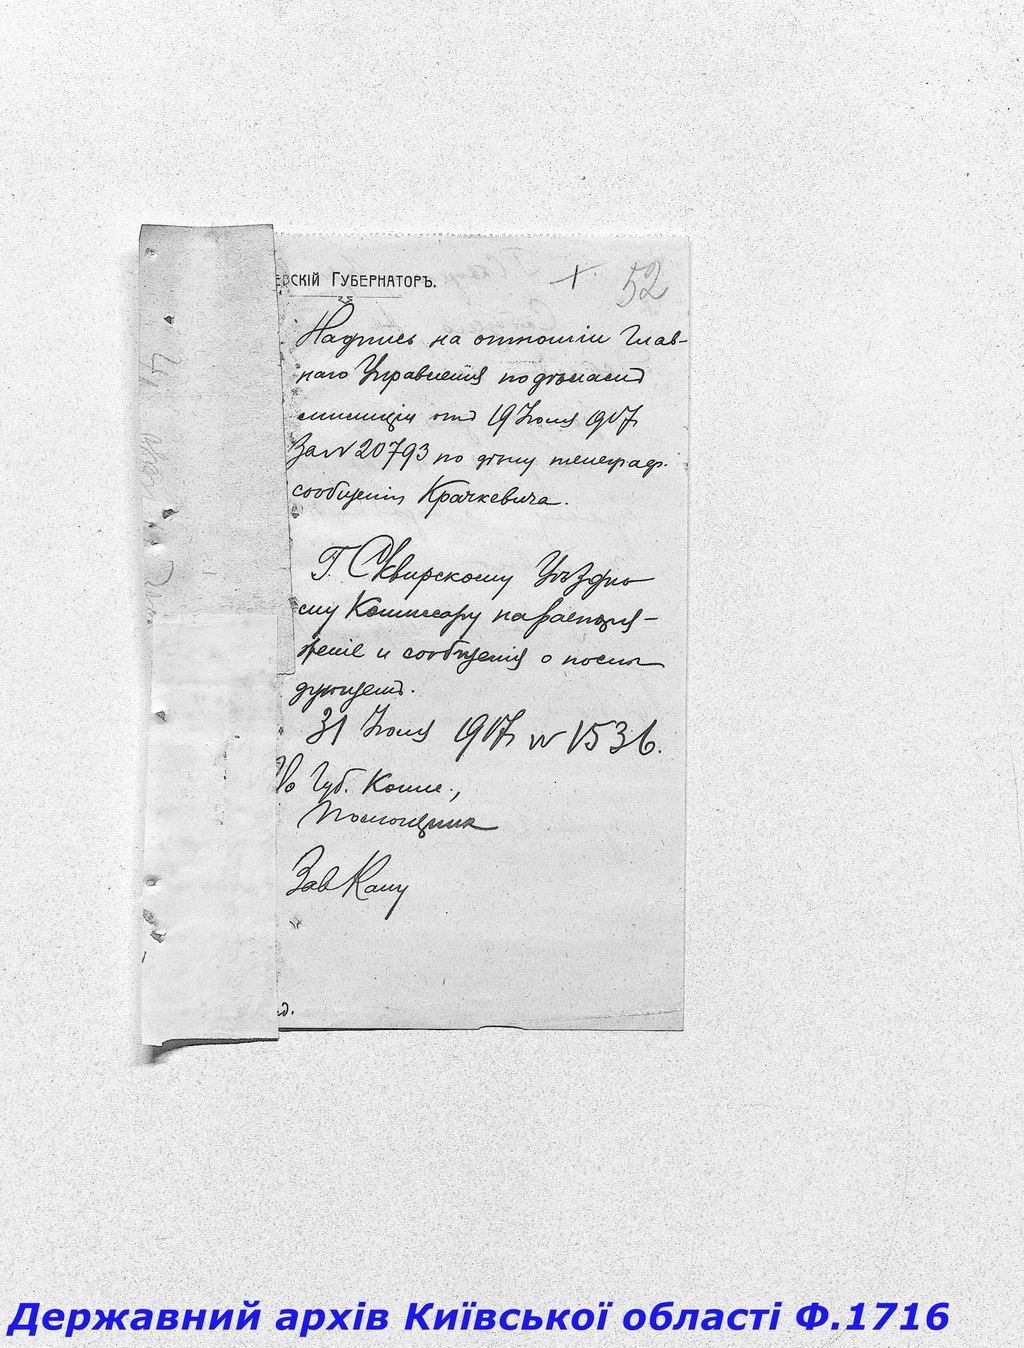 евскій Губернаторъ.
52
Надпись на отношеніи Глав-
наго Управленія по дѣламъ
милиціи отъ 19 Іюля 1917
За № 20793 по дѣлу телеграф.
сообщенія Крачкевича.
Г. Сквирскому Уѣздно
му Комиссару на распоря-
женіе и сообщенія о послѣ
дующемъ.
31 Іюля 1917 № 1536.
Губ. Комис.,
Помощникъ
Зав Канц
Державний архів Київської області Ф.1716